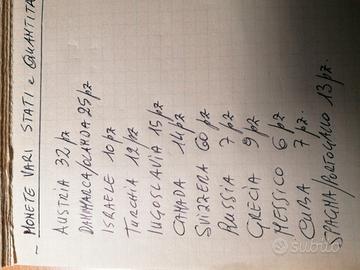 - MONETE VARI STATI e QUANTITA
AUSTRIA 32 pz
DANIMARCA/OLANDA 25 pz
ISRAELE 10 pz
TURCHIA 12 pz
IUGOSLAVIA 15 pz
CANADA 14 pz
SVIZZERA 60 pz
RUSSIA 7 pz
GRECIA 9 pz
MESSICO 6 pz
CUBA 7 pz.
SPAGNA/PORTOGALLO 13 pz
subito